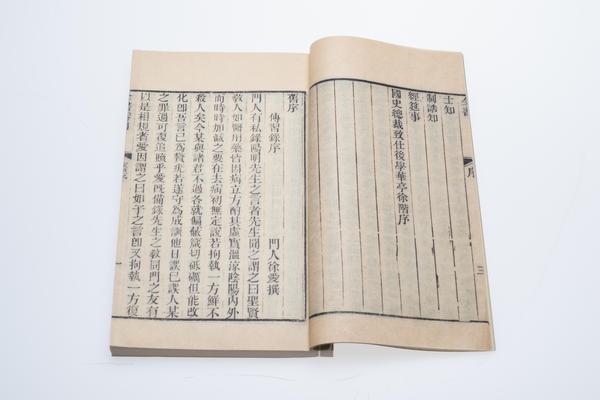 序
三
士知
制誥知
經筵事
國史總裁致仕後學華亭徐階序
舊序
傳習錄序 門人徐愛撰
門人有私錄陽明先生之言者先生聞之謂之曰聖賢
教人如醫用藥皆因病立方酌其虛實溫涼陰陽內外
而時時加減之要在去病初無定說若拘執一方鮮不
殺人矣今某與諸君不過各就偏蔽箴切砥礪但能改
化卽吾言已爲贅疣若遂守爲成訓他日誤已誤人某
之罪過可復追贖乎愛旣備錄先生之敎同門之友有
以是相規者愛因謂之曰如子之言卽又拘執一方復
一